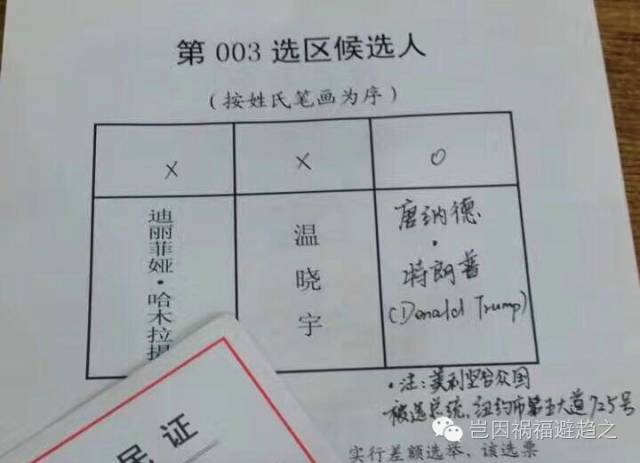 第003选区候选人
(按姓氏笔画为序)
× × ○
迪丽菲娅·哈木拉提
温晓宇
唐纳德
·
特朗普
(Donald Trump)
·注:美利坚合众国
被选总统,纽约市第五大道725号
实行差额选举,该选票
民证
岂因祸福避趋之